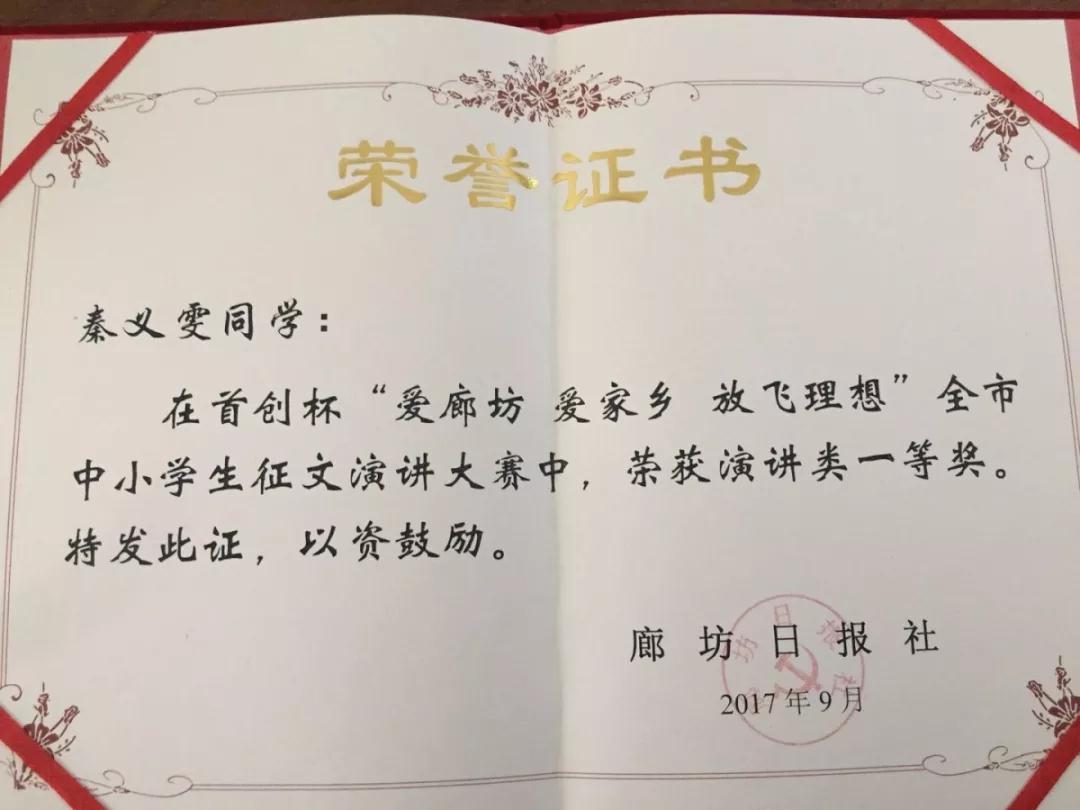 荣誉证书
秦义雯同学：
在首创杯“爱廊坊 爱家乡 放飞理想”全市
中小学生征文演讲大赛中，荣获演讲类一等奖。
特发此证，以资鼓励。
廊坊日报社
2017年9月